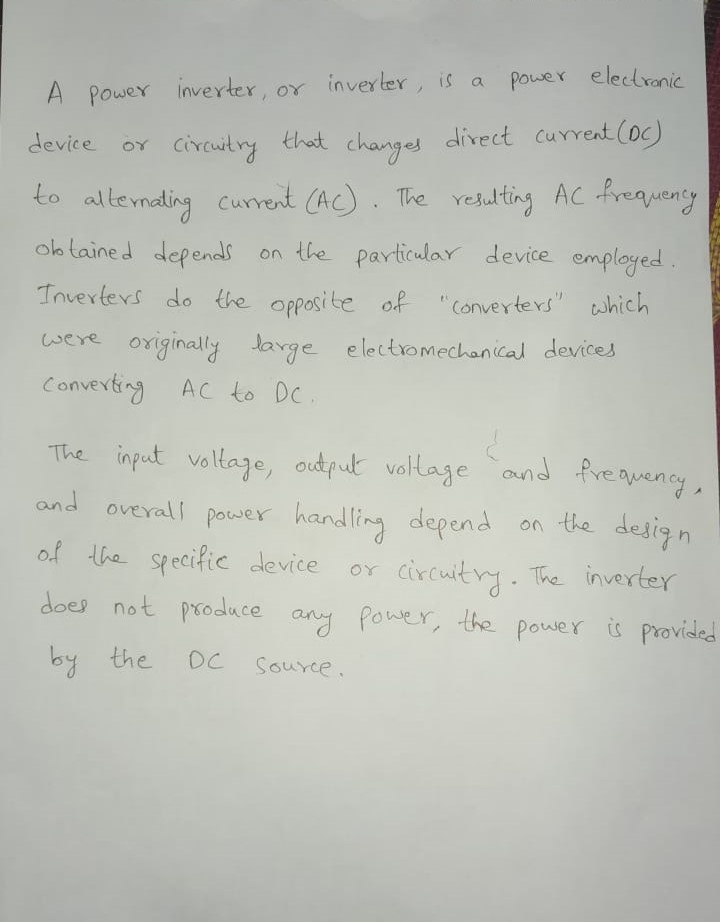 A power inverter, or inverter, is a power electronic
device or circuitry that changes direct current (DC)
to alternating current (AC). The resulting AC frequency
obtained depends on the particular device employed.
Inverters do the opposite of "converters" which
were originally large electromechanical devices
converting AC to DC.
The input voltage, output voltage and frequency,
and overall power handling depend on the design
of the specific device or circuitry. The inverter
does not produce any power, the power is provided
by the DC source.